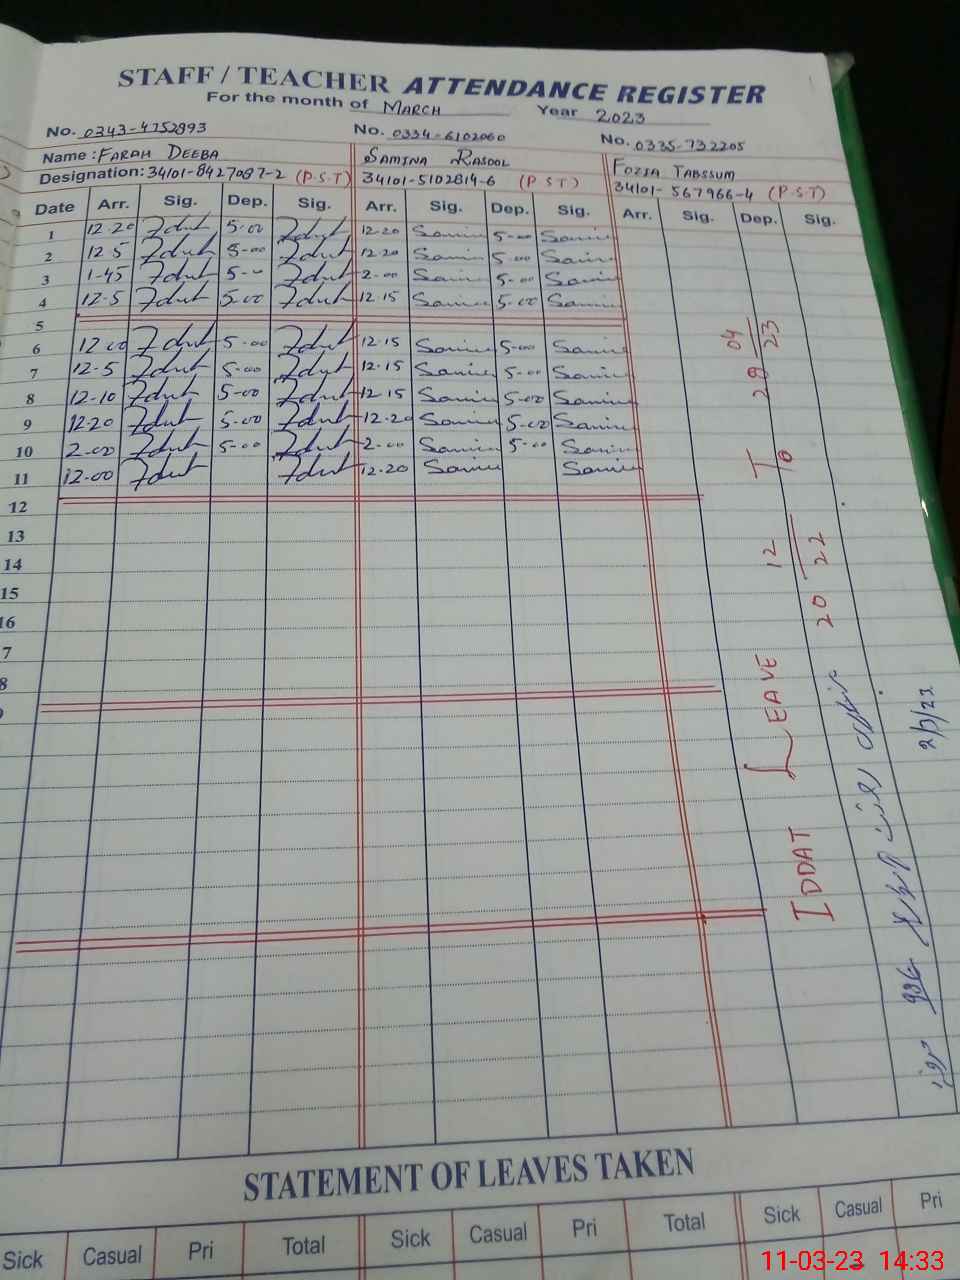 STAFF / TEACHER ATTENDANCE REGISTER
For the month of MARCH Year 2023
No. 0343-4752893 No. 0334-6102060 No. 0335-732205
Name : FARAH DEEBA SAMINA RASOOL FOZIA TABSSUM
Designation: 34101-8427087-2 (P.S.T) 34101-5102814-6 (P S T) 34101-567966-4 (P.S.T)
Date Arr. Sig. Dep. Sig. Arr. Sig. Dep. Sig. Arr. Sig. Dep. Sig.
1 12-20 5-00 12-20 Samina 5-00 Samina
2 12 5 5-00 12-20 Samina 5-00 Samina
3 1-45 5-00 2-00 Samina 5-00 Samina
4 12-5 5-00 12.15 Samina 5-00 Samina
5
6 12 00 5-00 12.15 Samina 5-00 Samina
7 12-5 5-00 12.15 Samina 5-00 Samina
8 12-10 5-00 12-15 Samina 5-00 Samina
9 12-20 5-00 12-20 Samina 5-00 Samina
10 2-00 5-00 2-00 Samina 5-00 Samina
11 12-00 12-20 Samina Samina
12
13
14
15
16
7
8
IDDAT LEAVE 20 12 22 To 28 04 23
STATEMENT OF LEAVES TAKEN
Sick Casual Pri Total Sick Casual Pri Total Sick Casual Pri
11-03-23 14:33